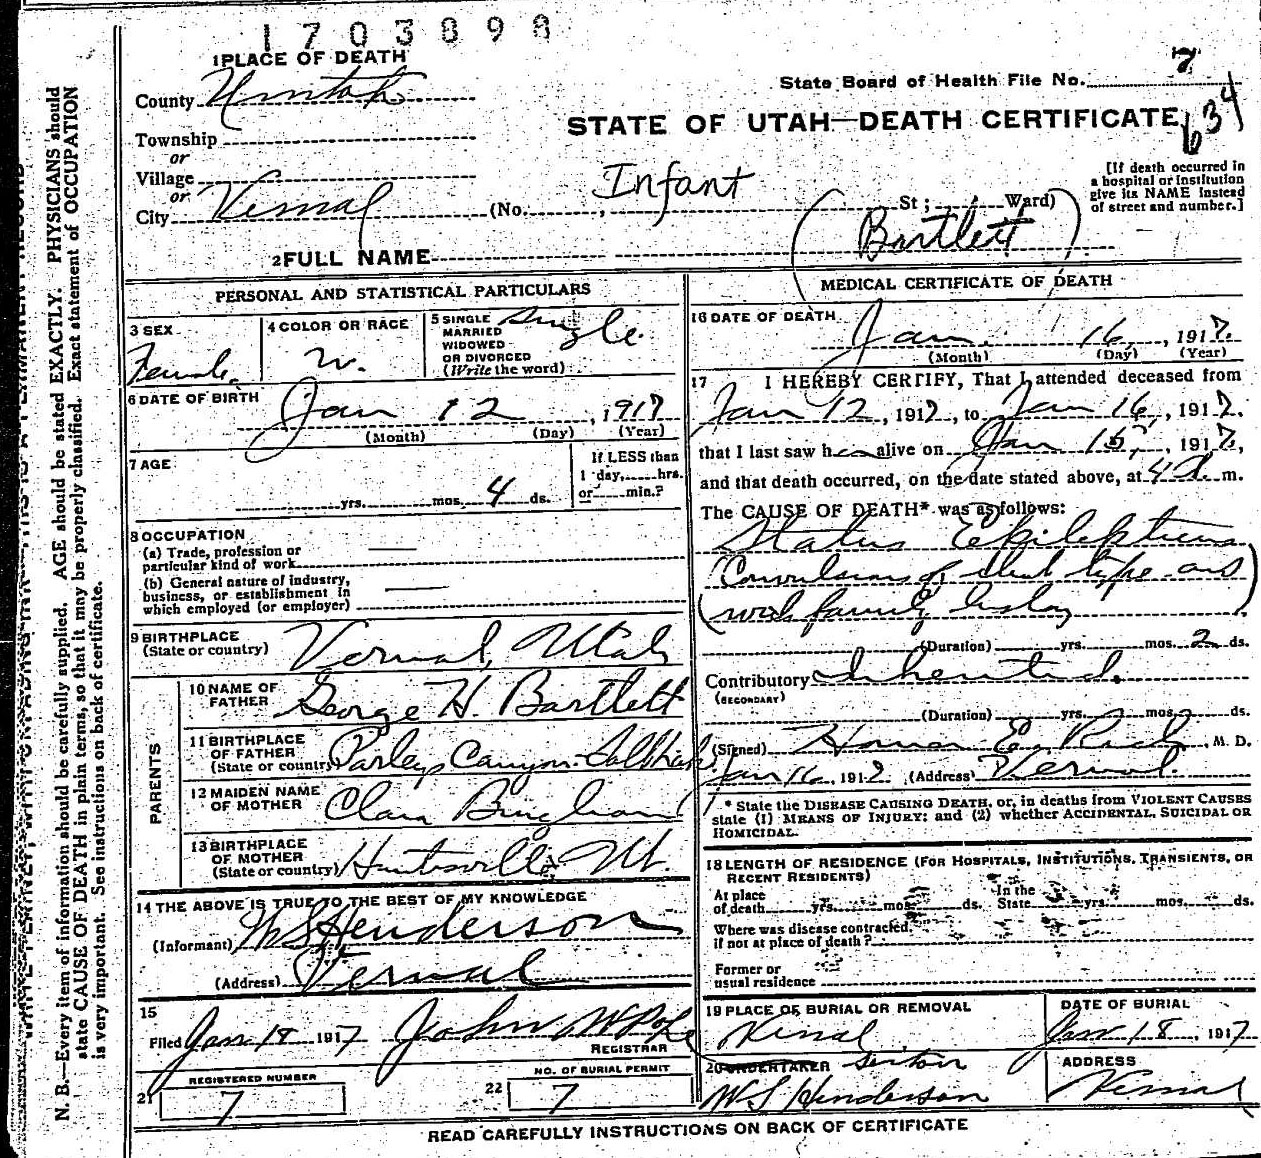 1703898
1 PLACE OF DEATH
State Board of Health File No. 7
County Uintah
634
STATE OF UTAH—DEATH CERTIFICATE
Township
or
Village
or
City Vernal (No. , Infant St ; Ward)
[If death occurred in
a hospital or institution
give its NAME instead
of street and number.]
2 FULL NAME (Bartlett)
PERSONAL AND STATISTICAL PARTICULARS
3 SEX
Female
4 COLOR OR RACE
W.
5 SINGLE
MARRIED
WIDOWED
OR DIVORCED
(Write the word)
Single
6 DATE OF BIRTH
Jan 12, 1917
(Month) (Day) (Year)
7 AGE
yrs. mos. 4 ds.
If LESS than
1 day, hrs.
or min.?
8 OCCUPATION
(a) Trade, profession or
particular kind of work
(b) General nature of industry,
business, or establishment in
which employed (or employer)
9 BIRTHPLACE
(State or country) Vernal, Utah
PARENTS
10 NAME OF
FATHER George H. Bartlett
11 BIRTHPLACE
OF FATHER
(State or country) Parleys Canyon
12 MAIDEN NAME
OF MOTHER Clara Bingham
13 BIRTHPLACE
OF MOTHER
(State or country) Huntsville Ut.
14 THE ABOVE IS TRUE TO THE BEST OF MY KNOWLEDGE
(Informant) W S Henderson
(Address) Vernal
15
Filed Jan 18 1917 John W
REGISTRAR
REGISTERED NUMBER
21 7
NO. OF BURIAL PERMIT
22 7
MEDICAL CERTIFICATE OF DEATH
16 DATE OF DEATH
Jan. 16, 1917.
(Month) (Day) (Year)
17 I HEREBY CERTIFY, That I attended deceased from
Jan 12, 1917, to Jan 16, 1917,
that I last saw her alive on Jan 15, 1917,
and that death occurred, on the date stated above, at 4 a m.
The CAUSE OF DEATH* was as follows:
Status Epilepticus
(Convulsions of that type and
with family history)
(Duration) yrs. mos. 2 ds.
Contributory Inherited.
(SECONDARY)
(Duration) yrs. mos. ds.
(Signed) Homer E. Rich, M. D.
Jan 16, 1917 (Address) Vernal.
* State the DISEASE CAUSING DEATH, or, in deaths from VIOLENT CAUSES
state (1) MEANS OF INJURY; and (2) whether ACCIDENTAL, SUICIDAL OR
HOMICIDAL.
18 LENGTH OF RESIDENCE (FOR HOSPITALS, INSTITUTIONS, TRANSIENTS, OR
RECENT RESIDENTS)
At place
of death yrs. mos. ds.
In the
State yrs. mos. ds.
Where was disease contracted,
if not at place of death?
Former or
usual residence
19 PLACE OF BURIAL OR REMOVAL
Vernal
DATE OF BURIAL
Jan 18, 1917
20 UNDERTAKER Sexton
W S Henderson
ADDRESS
Vernal
READ CAREFULLY INSTRUCTIONS ON BACK OF CERTIFICATE
N. B.—Every item of information should be carefully supplied. AGE should be stated EXACTLY. PHYSICIANS should
state CAUSE OF DEATH in plain terms, so that it may be properly classified. Exact statement of OCCUPATION
is very important. See instructions on back of certificate.